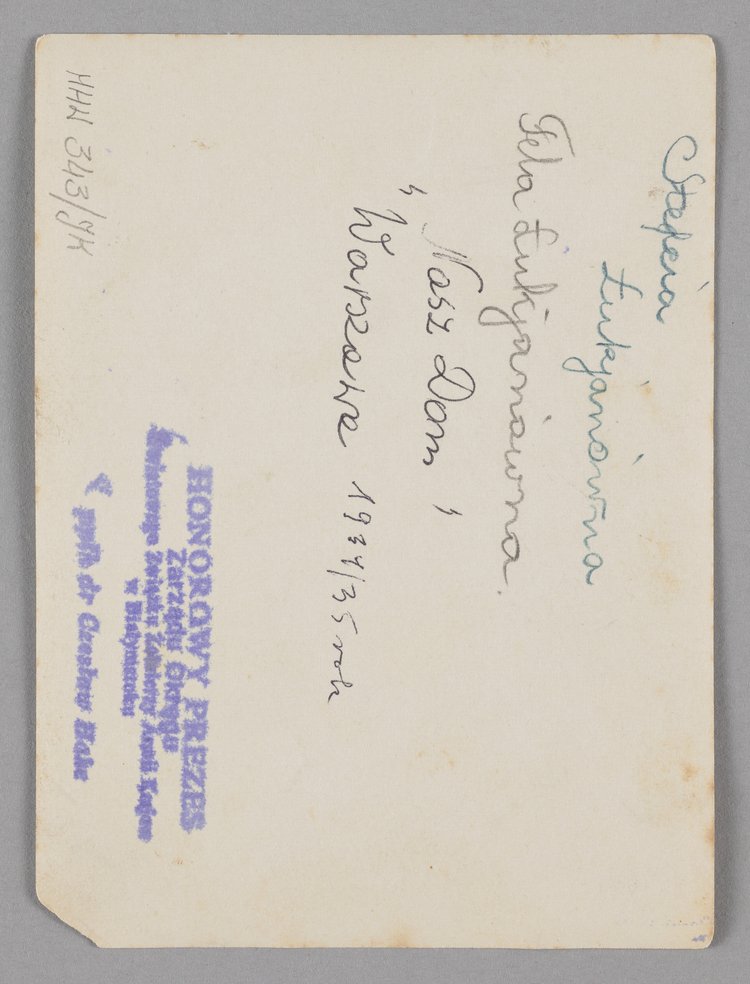 Stefcia
Łukjanówna
Fela Łukjanówna.
„Nasz Dom"
Warszawa 1934/35 rok
HONOROWY PREZES
Zarządu Okręgu
Światowego Związku Żołnierzy Armii Krajowej
w Białymstoku
ppłk dr Czesław Hake